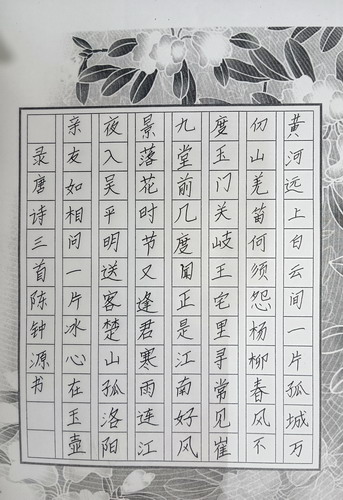 黄河远上白云间一片孤城万
仞山羌笛何须怨杨柳春风不
度玉门关岐王宅里寻常见崔
九堂前几度闻正是江南好风
景落花时节又逢君寒雨连江
夜入吴平明送客楚山孤洛阳
亲友如相问一片冰心在玉壶
录唐诗三首陈钟源书